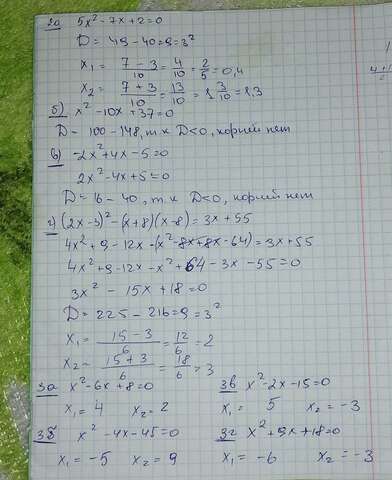 2а 5x² - 7x + 2 = 0
D = 49 - 40 = 9 = 3²
x₁ = (7 - 3)/10 = 4/10 = 2/5 = 0,4
x₂ = (7 + 3)/10 = 13/10 = 1 3/10 = 1,3
б) x² - 10x + 37 = 0
D = 100 - 148, т.к D<0, корней нет
в) -2x² + 4x - 5 = 0
2x² - 4x + 5 = 0
D = 16 - 40, т.к D<0, корней нет
г) (2x - 3)² - (x + 8)(x - 8) = 3x + 55
4x² + 9 - 12x - (x² - 8x + 8x - 64) = 3x + 55
4x² + 9 - 12x - x² + 64 - 3x - 55 = 0
3x² - 15x + 18 = 0
D = 225 - 216 = 9 = 3²
x₁ = (15 - 3)/6 = 12/6 = 2
x₂ = (15 + 3)/6 = 18/6 = 3
3а x² - 6x + 8 = 0 3в x² - 2x - 15 = 0
x₁ = 4 x₂ = 2 x₁ = 5 x₂ = -3
3б x² - 4x - 45 = 0 3г x² + 9x + 18 = 0
x₁ = -5 x₂ = 9 x₁ = -6 x₂ = -3